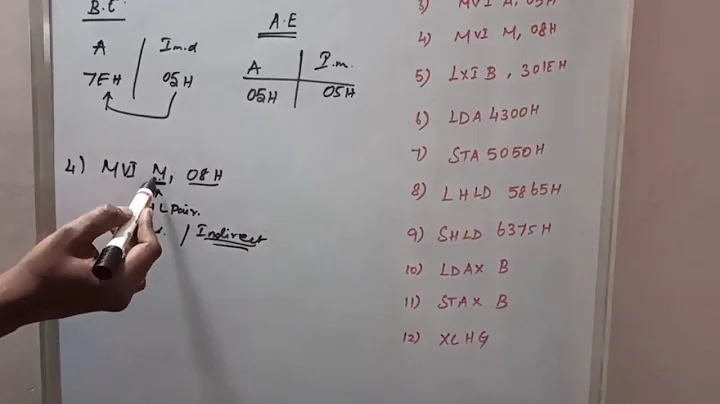 B.t.
A Im.d
7EH 05H
A.E
A I.m.
05H 05H
4) MVI M, 08H
HL Pair.
/ Indirect
3) MVI A, 05H
4) MVI M, 08H
5) LXI B, 301EH
6) LDA 4300H
7) STA 5050H
8) LHLD 5865H
9) SHLD 6375H
10) LDAX B
11) STAX B
12) XCHG